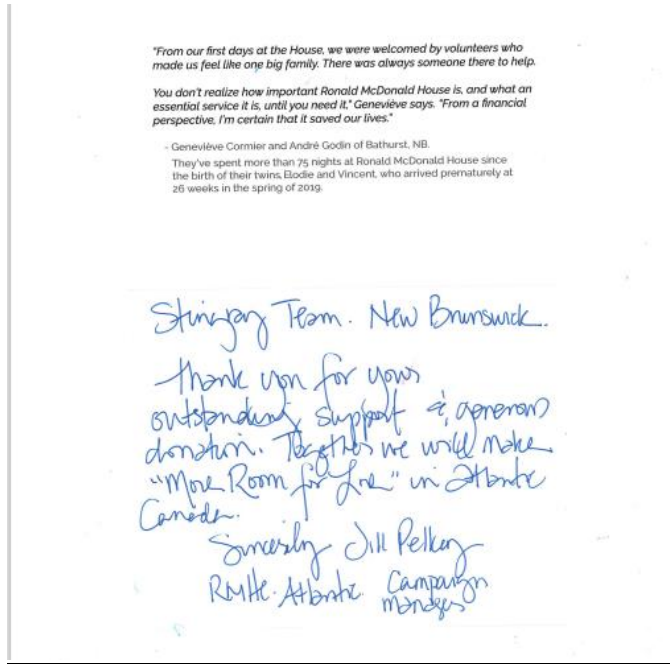 "From our first days at the House, we were welcomed by volunteers who
made us feel like one big family. There was always someone there to help.
You don't realize how important Ronald McDonald House is, and what an
essential service it is, until you need it," Geneviève says. "From a financial
perspective, I'm certain that it saved our lives."
- Geneviève Cormier and André Godin of Bathurst, NB.
They've spent more than 75 nights at Ronald McDonald House since
the birth of their twins, Elodie and Vincent, who arrived prematurely at
26 weeks in the spring of 2019.
Stingray Team. New Brunswick.
Thank you for your
outstanding support & generous
donation. Together we will make
"More Room for Love" in Atlantic
Canada.
Sincerely Jill Pelkey
RMHC. Atlantic Campaign
Manager